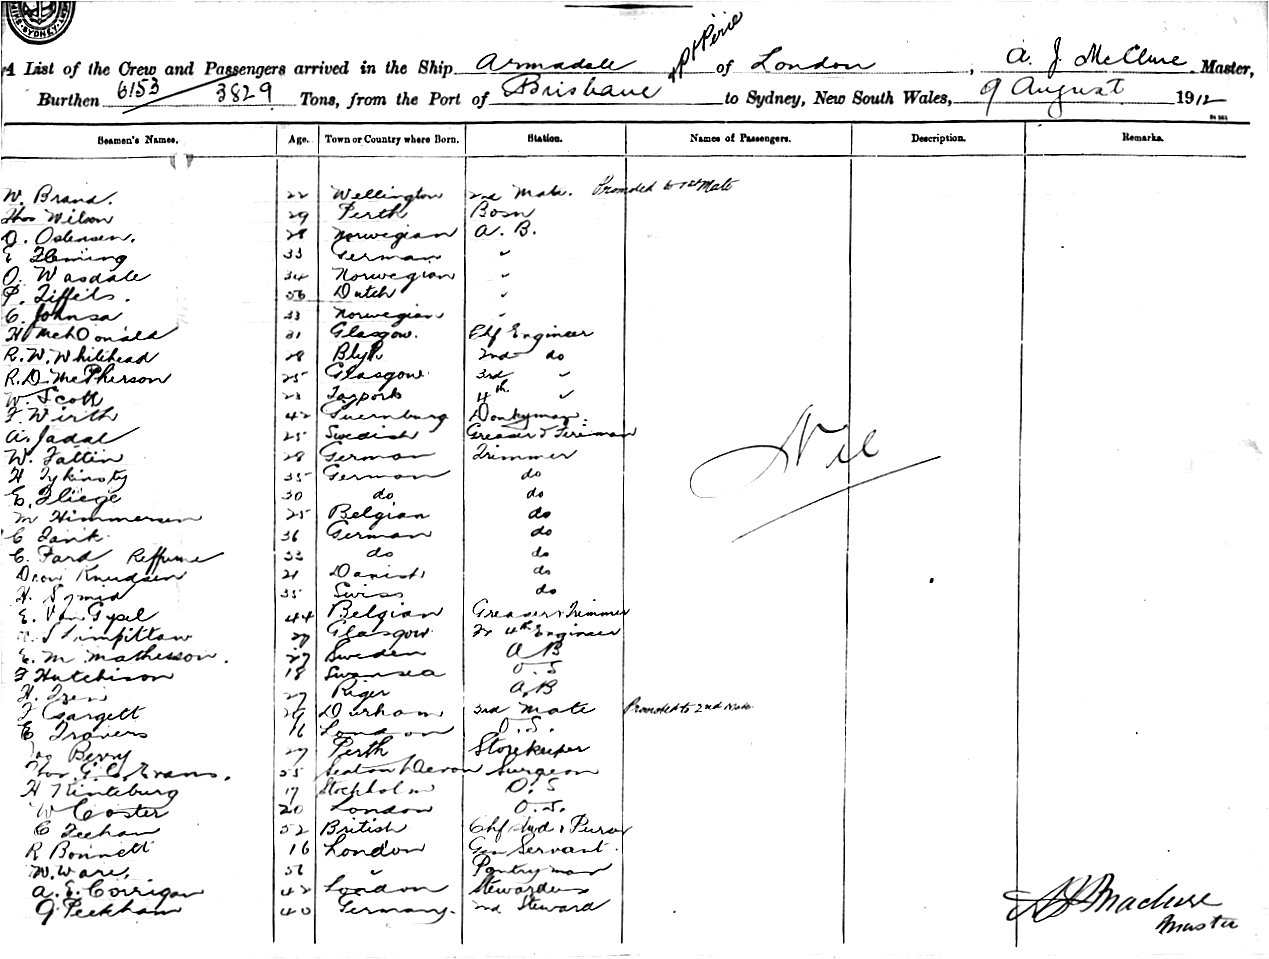 SYDNEY
A List of the Crew and Passengers arrived in the Ship Armadale of London, A. J. McClure Master,
Burthen 6153 3829 Tons, from the Port of Brisbane to Sydney, New South Wales, 9 August 1912
Seamen's Names. Age. Town or Country where Born. Station. Names of Passengers. Description. Remarks.
W. Brand. 22 Wellington 2nd Mate. Promoded to 1st Mate
Thos Wilson 29 Perth Bosn
O. Ostensen. 28 Norwegian A. B.
E Fleming 33 German "
O. Wasdale 34 Norwegian "
P. Tiffels. 56 Dutch "
C. Johnsa 33 Norwegian "
H McDonald 31 Glasgow. Chf Engineer
R. W. Whitehead 28 Blyth 2nd do
R. D. McPherson 25 Glasgow 3rd "
W. Scott 23 Tayport 4th "
F. Wirth 42 Donkyman.
A. Jadal 25 Swedish Greaser & Fireman
W. Fattin 28 German Trimmer
H 35 German do
E. Fliege 30 do do
M Himmersen 25 Belgian do
C Tank. 36 German do
C. Pard 33 do do
Knudsen 21 Danish do
H. 35 Swiss do
E. Van Gysel 44 Belgian Greaser & Trimmer
27 Glasgow 4th Engineer
E. M Mathesson. 27 Sweden A B
F Hutchison 18 Swansea O. S
H. 27 Riger A. B
F Gargett 29 Durham 3rd Mate Promoted to 2nd Mate
E Travers 16 London O. S.
Jas Berry 27 Perth Storekeeper
Thos. G. C. Evans. 55 Seaton Devon Surgeon
H Kinteburg 17 Stockholm O. S
W Coster 20 London O. S.
C Feehan 52 British Chf Stwd & Purser
R Bonnett 16 London Gen Servant.
W. Ware, 56 " Pantryman
A. E. Corrigan 42 London Stewardess
G. Peckham 40 Germany. 2nd Steward
Nil
Master